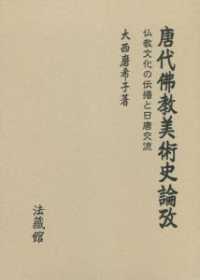 唐代佛教美術史論攷
仏教文化の伝播と日唐交流
大西磨希子著
法藏館